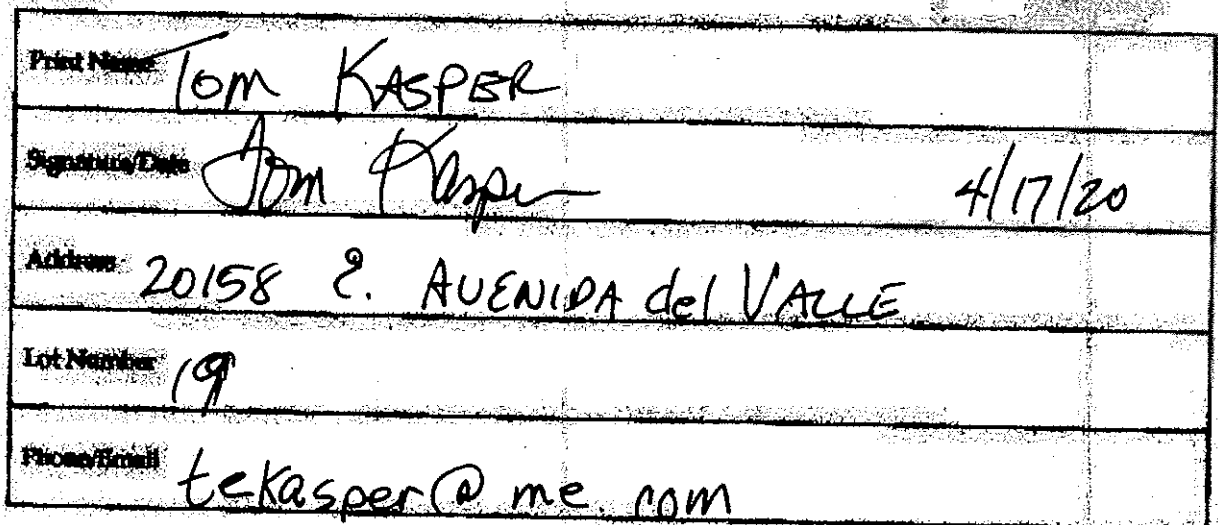 Print Name Tom KASPER
Signature/Date Tom Kasper 4/17/20
Address 20158 E. AVENIDA del VALLE
Lot Number 19
Phone/Email tekasper@me.com